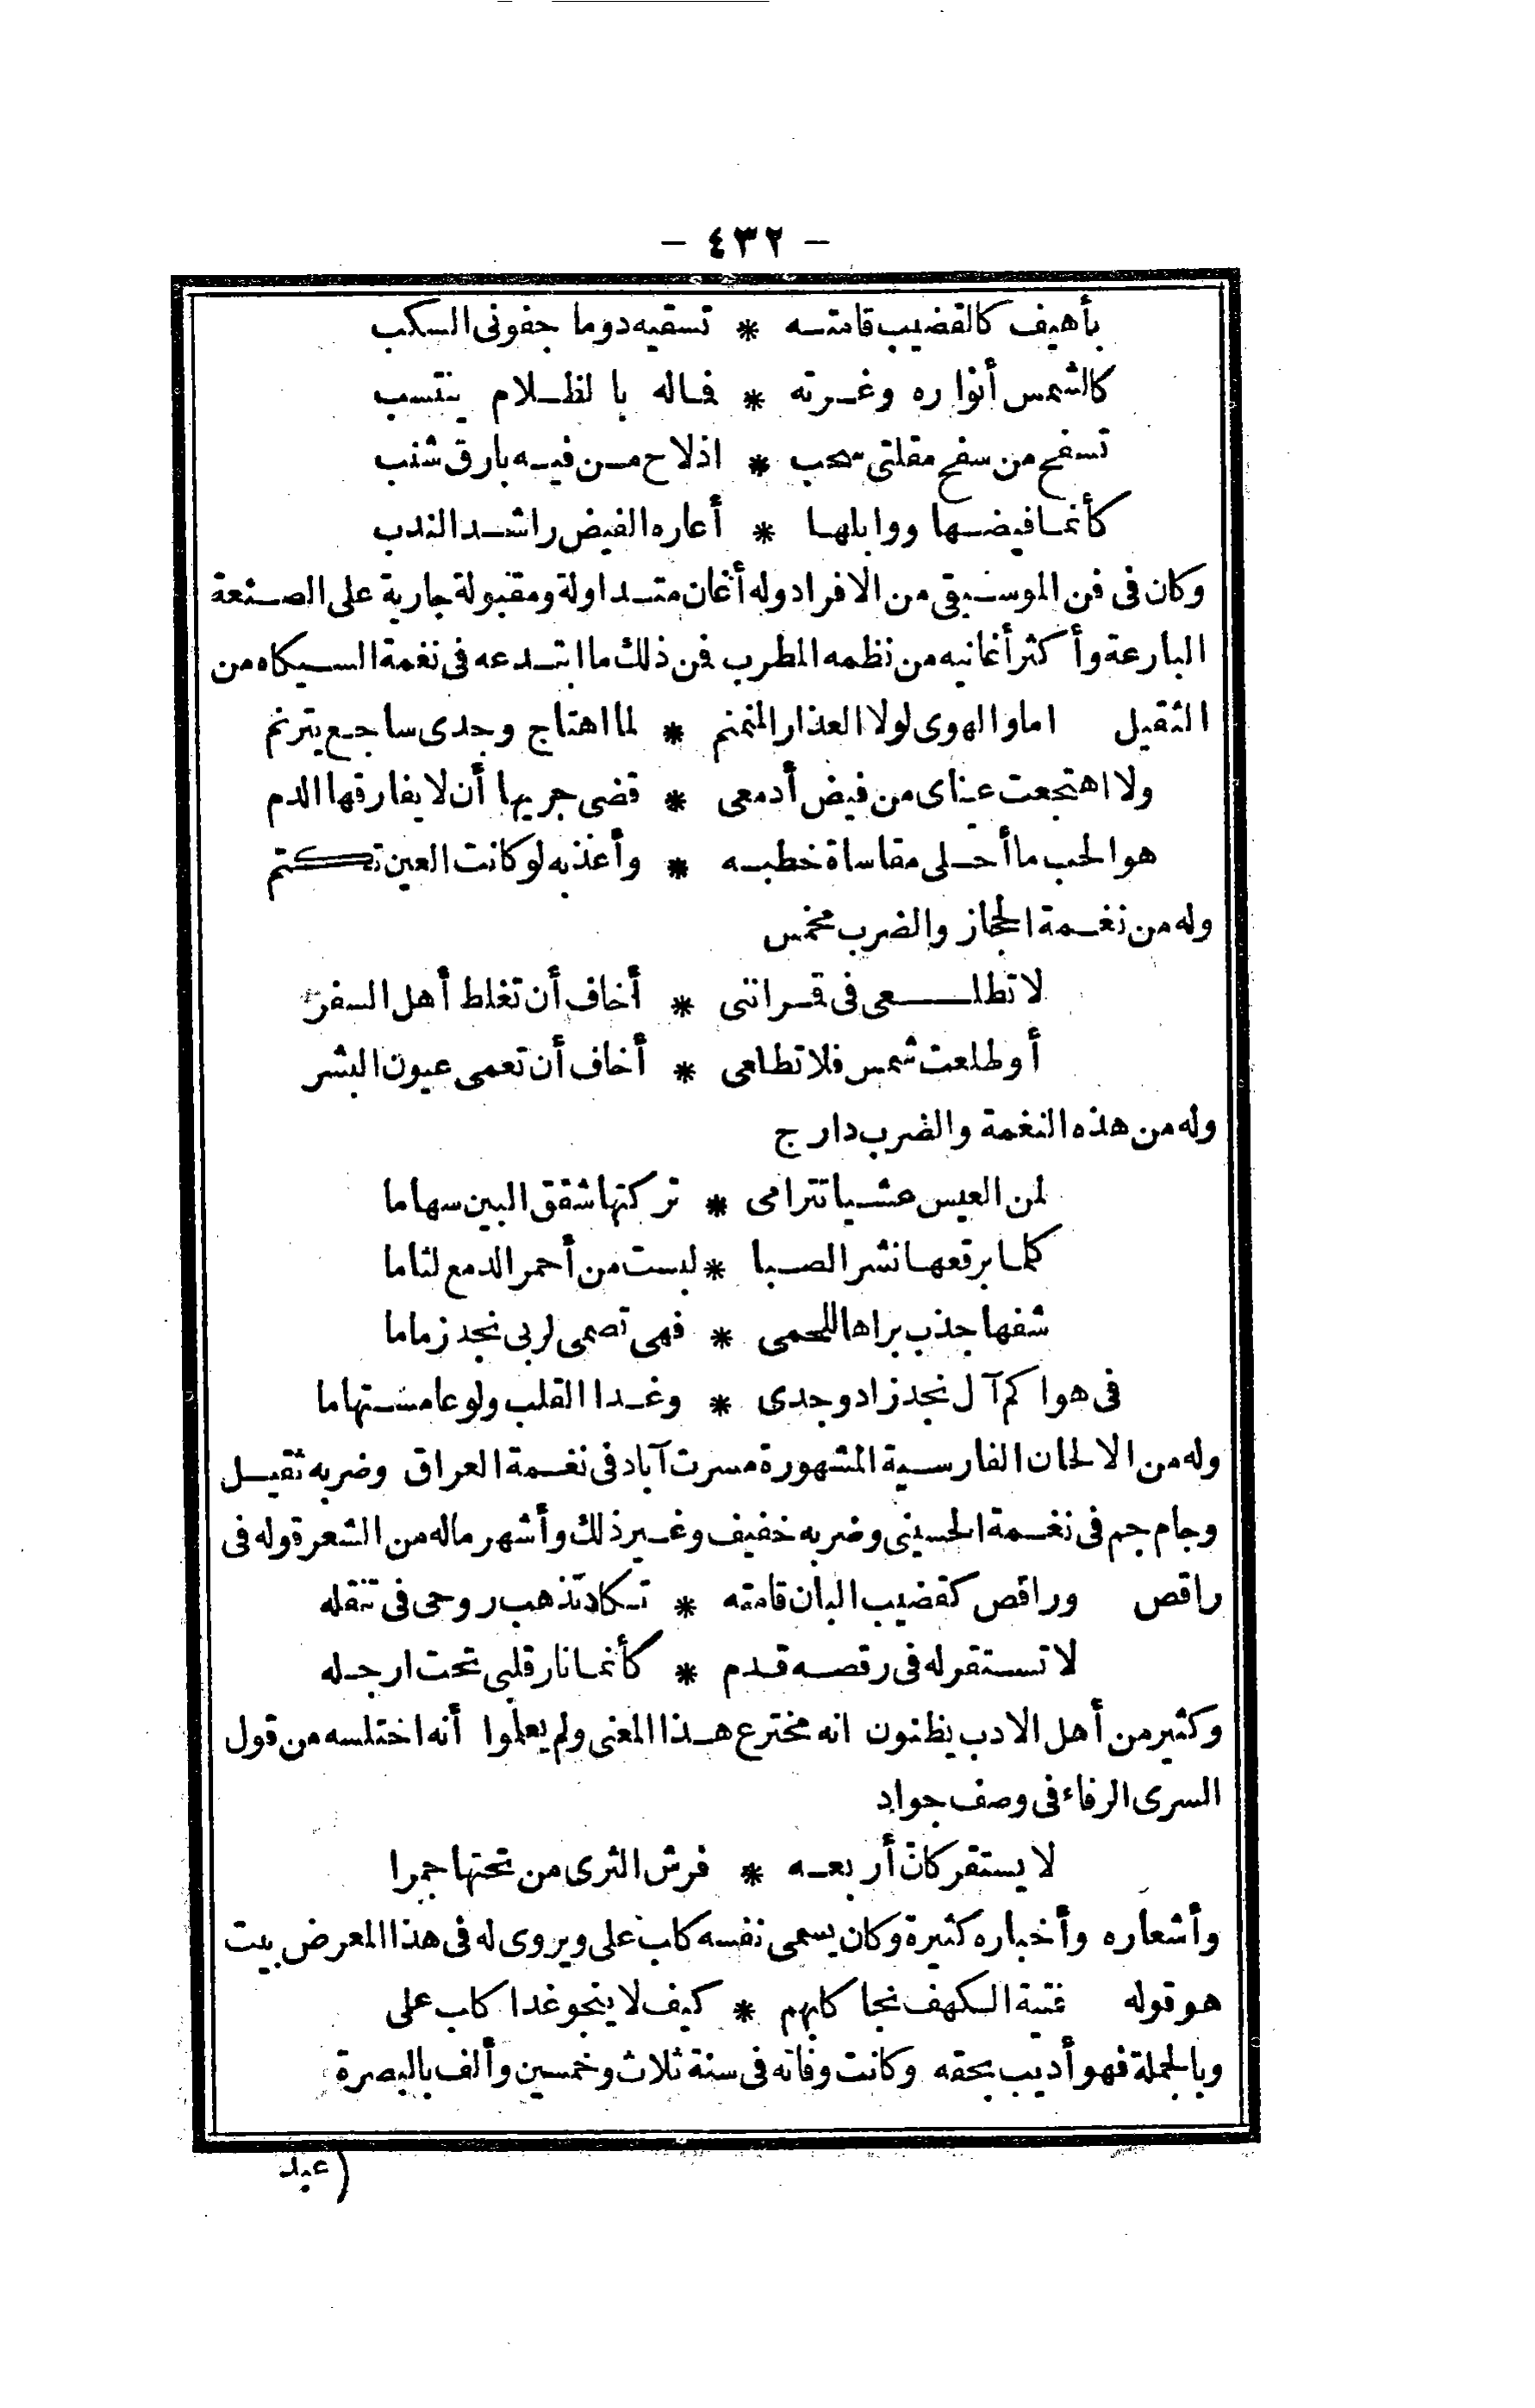 - ٤٣٢ -
بأهيف كالقضيب قامته * تسقيه دوما جفونى السكب
كالشمس أنواره وغرته * فاله بالظلام ينتسب
تسفح من سفح مقلتى سحب * اذلاح من فيه بارق شنب
كأنما فيضها ووابلها * أعاره الفيض راشد الندب
وكان فى فن الموسيقى من الافراد وله أغان متداولة ومقبولة جارية على الصنعة
البارعة وأكثر أغانيه من نظمه المطرب فمن ذلك ما ابتدعه فى نغمة السيكاه من
الثقيل اما والهوى لولا العذار المنمنم * لما اهتاج وجدى ساجع يترنم
ولا اهتجعت عيناى من فيض أدمعى * قضى جريها أن لا يفارقها الدم
هو الحب ما أحلى مقاساة خطبه * وأعذبه لو كانت العين تكتم
وله من نغمة الحجاز والضرب مخمس
لا تطلعى فى قمر اننى * أخاف أن تغلط أهل السفر
أو طلعت شمس فلا تطلعى * أخاف أن تعمى عيون البشر
وله من هذه النغمة والضرب دارج
لمن العيس عشيا تترامى * تركتها شقق البين سهاما
كلما برقعها نشر الصبا * لبست من أحمر الدمع لثاما
شفها جذب براها للحمى * فهى تصمى لربى نجد زماما
فى هواكم آل نجد زاد وجدى * وغدا القلب ولوعا مستهاما
وله من الالحان الفارسية المشهورة مسرت آباد فى نغمة العراق وضربه ثقيل
وجام جم فى نغمة الحسينى وضربه خفيف وغير ذلك وأشهر ماله من الشعر قوله فى
راقص وراقص كقضيب البان قامته * تكاد تذهب روحى فى تنقله
لا تستقر له فى رقصه قدم * كأنما نار قلبى تحت ارجله
وكثير من أهل الادب يظنون انه مخترع هذا المعنى ولم يعلموا أنه اختلسه من قول
السرى الرفاء فى وصف جواد
لا يستقر كان أربعه * فرش الثرى من تحتها جمرا
وأشعاره وأخباره كثيرة وكان يسمى نفسه كلب على ويروى له فى هذا المعرض بيت
هو قوله فتية الكهف نجا كلبهم * كيف لا ينجو غدا كلب على
وبالجملة فهو أديب بحقه وكانت وفاته فى سنة ثلاث وخمسين وألف بالبصرة
(عبد